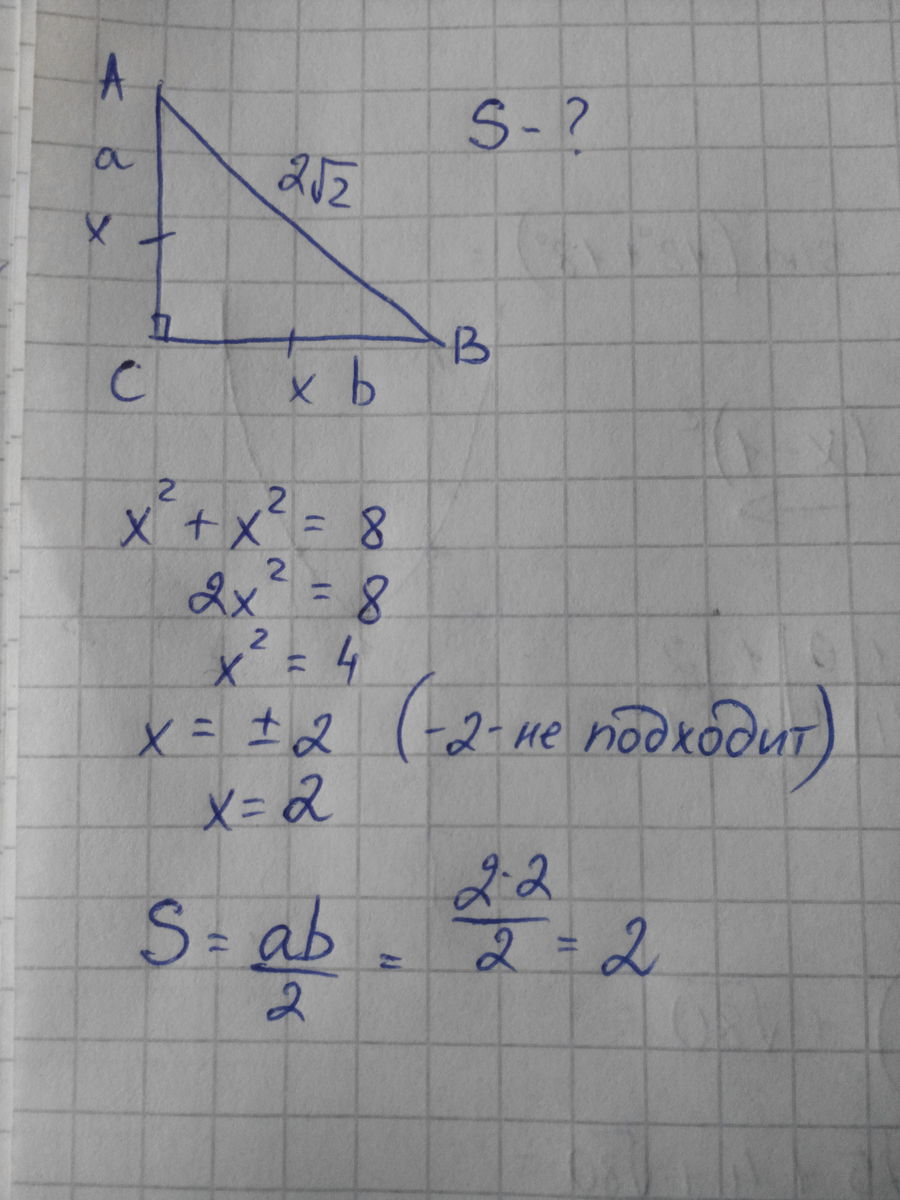 A
S - ?
a
2√2
x
C
x b
B
x² + x² = 8
2x² = 8
x² = 4
x = ± 2 (-2- не подходит)
x = 2
S = ab/2 = 2·2/2 = 2